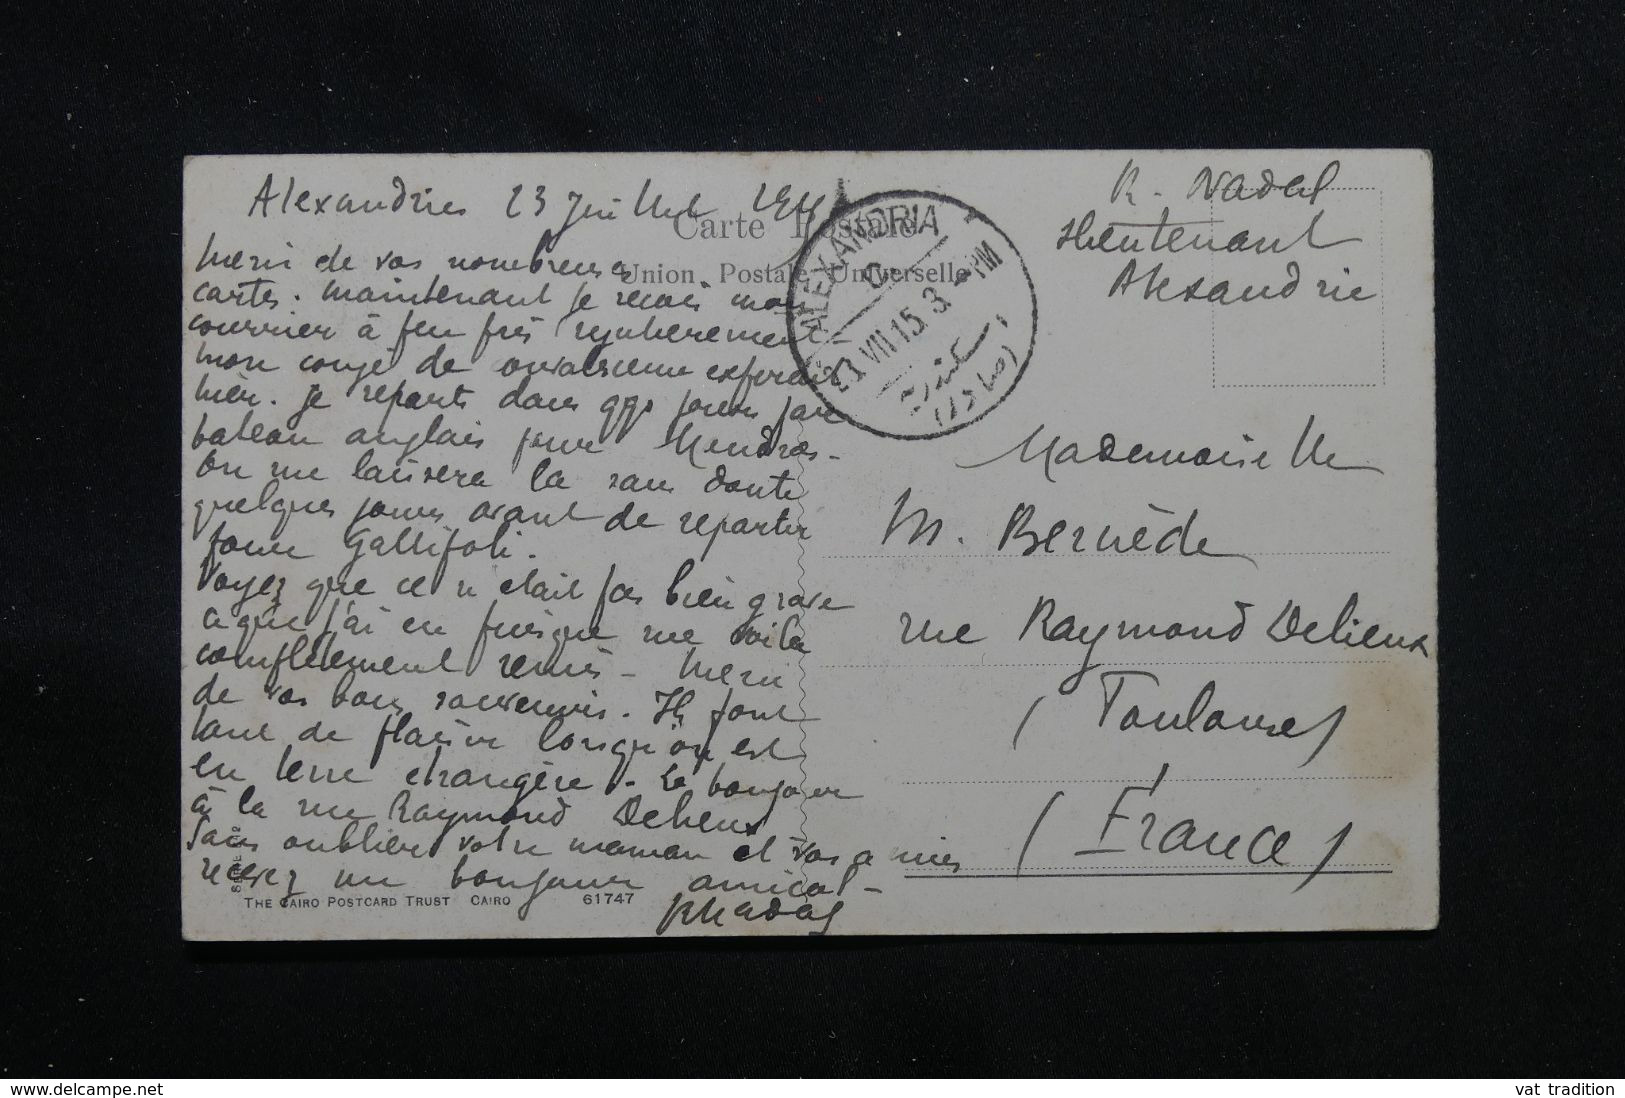 Alexandrie 23 Juillet 1915
Merci de vos nombreuses
cartes. Maintenant je reçois mon
courrier à peu près régulièrement -
mon congé de convalescence expirait
hier. Je reparts dans qqs jours par
bateau anglais pour Moudros -
On me laissera là sans doute
quelques jours avant de repartir
pour Gallipoli.
Voyez que ce n'était pas bien grave
ce que j'ai eu puisque me voilà
complètement remis - Merci
de vos bons souvenirs. Ils font
tant de plaisir lorsqu'on est
en terre étrangère. Le bonjour
à la rue Raymond Delieux
Sans oublier votre maman et vos amies
recevez un bonjour amical -
RNadal
Carte Postale
Union Postale Universelle
THE CAIRO POSTCARD TRUST CAIRO 61747
ALEXANDRIA
D
23 VII 15. 3 - PM
اسكندرية
(صادر)
R. Nadal
Lieutenant
Alexandrie
Mademoiselle
M. Bernède
rue Raymond Delieux
(Toulouse)
(France)
www.delcampe.net
vat_tradition